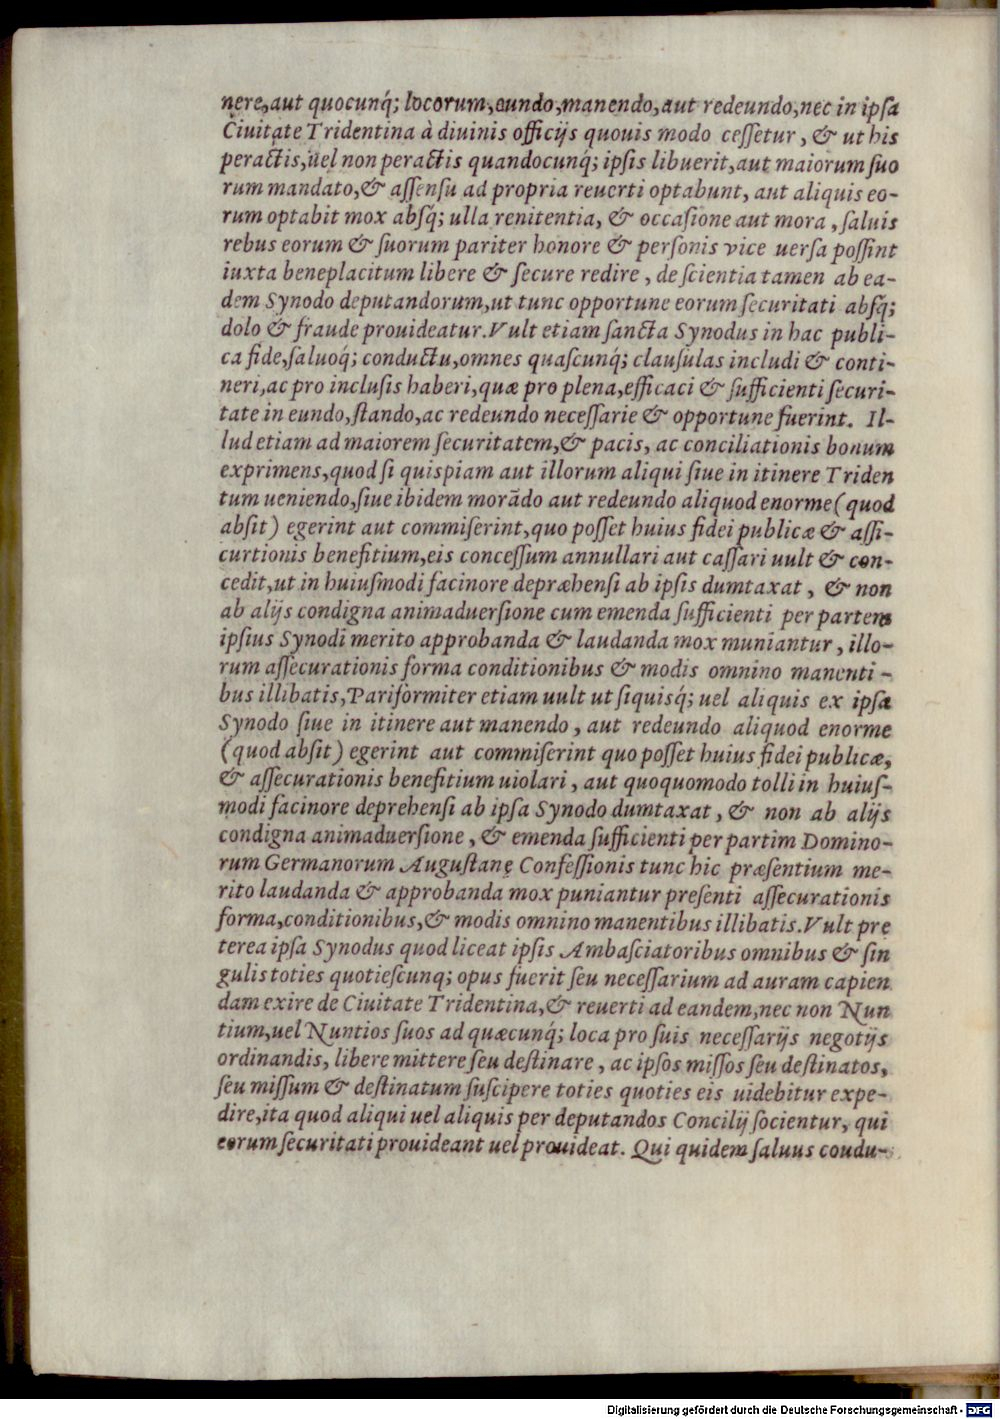 nere,aut quocunq́; locorum,eundo,manendo,aut redeundo,nec in ipſa
Ciuitate Tridentina à diuinis officijs quouis modo ceſſetur, & ut his
peractis,uel non peractis quandocunq́; ipſis libuerit,aut maiorum ſuo
rum mandato,& aſſenſu ad propria reuerti optabunt, aut aliquis eo-
rum optabit mox abſq́; ulla renitentia, & occaſione aut mora, ſaluis
rebus eorum & ſuorum pariter honore & perſonis vice uerſa poſſint
iuxta beneplacitum libere & ſecure redire, de ſcientia tamen ab ea-
dem Synodo deputandorum,ut tunc opportune eorum ſecuritati abſq́;
dolo & fraude prouideatur.Vult etiam ſancta Synodus in hac publi-
ca fide,ſaluoq́; conductu,omnes quaſcunq́; clauſulas includi & conti-
neri,ac pro incluſis haberi,quæ pro plena,efficaci & ſufficienti ſecuri-
tate in eundo,ſtando,ac redeundo neceſſarie & opportune fuerint. Il-
lud etiam ad maiorem ſecuritatem,& pacis, ac conciliationis bonum
exprimens,quod ſi quispiam aut illorum aliqui ſiue in itinere Triden
tum ueniendo,ſiue ibidem morãdo aut redeundo aliquod enorme(quod
abſit) egerint aut commiſerint,quo poſſet huius fidei publicæ & aſſi-
curtionis benefitium,eis conceſſum annullari aut caſſari uult & con-
cedit,ut in huiuſmodi facinore depræhenſi ab ipſis dumtaxat, & non
ab alijs condigna animaduerſione cum emenda ſufficienti per partem
ipſius Synodi merito approbanda & laudanda mox muniantur, illo-
rum aſſecurationis forma conditionibus & modis omnino manenti-
bus illibatis,Pariformiter etiam uult ut ſiquisq́; uel aliquis ex ipſa
Synodo ſiue in itinere aut manendo, aut redeundo aliquod enorme
(quod abſit) egerint aut commiſerint quo poſſet huius fidei publicæ,
& aſſecurationis benefitium uiolari, aut quoquomodo tolli in huiuſ-
modi facinore deprehenſi ab ipſa Synodo dumtaxat, & non ab alijs
condigna animaduerſione, & emenda ſufficienti per partim Domino-
rum Germanorum Auguſtanę Confeſſionis tunc hic præſentium me-
rito laudanda & approbanda mox puniantur preſenti aſſecurationis
forma,conditionibus,& modis omnino manentibus illibatis.Vult pre
terea ipſa Synodus quod liceat ipſis Ambaſciatoribus omnibus & ſin
gulis toties quotieſcunq; opus fuerit ſeu neceſſarium ad auram capien
dam exire de Ciuitate Tridentina,& reuerti ad eandem,nec non Nun
tium,uel Nuntios ſuos ad quæcunq́; loca pro ſuis neceſſarijs negotijs
ordinandis, libere mittere ſeu deſtinare, ac ipſos miſſos ſeu deſtinatos,
ſeu miſſum & deſtinatum ſuſcipere toties quoties eis uidebitur expe-
dire,ita quod aliqui uel aliquis per deputandos Concilij ſocientur, qui
eorum ſecuritati prouideant uel prouideat. Qui quidem ſaluus coudu-
Digitalisierung gefördert durch die Deutsche Forschungsgemeinschaft - DFG